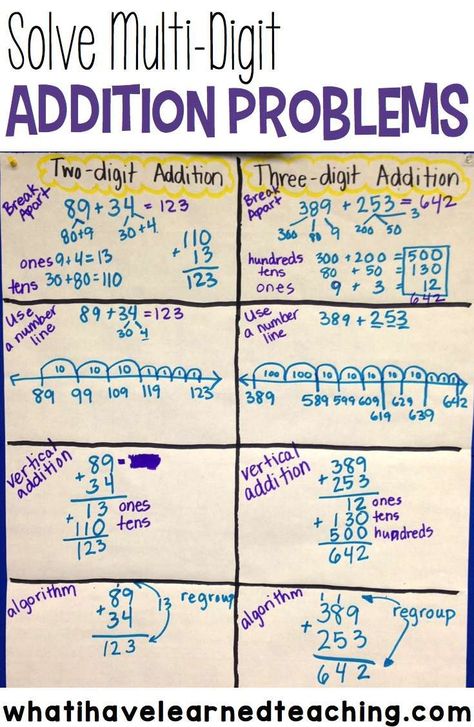 Solve Multi-Digit
ADDITION PROBLEMS
Two-digit Addition
Break Apart
89 + 34 = 123
80+9 30+4
ones 9+4=13
tens 30+80=110
110
+ 13
123
Three-digit Addition
Break Apart
389 + 253 = 642
300 80 9 200 50 3
hundreds 300 + 200 = 500
tens 80 + 50 = 130
ones 9 + 3 = 12
642
Use a number line
89 + 34 = 123
30 4
10 10 10 1 1 1 1
89 99 109 119 123
Use a number line
389 + 253
100 100 10 10 10 10 10 1 1 1
389 589 599 609 619 629 639 642
vertical addition
89 =
+ 34
13 ones
+ 110 tens
123
vertical addition
389
+ 253
12 ones
+ 130 tens
500 hundreds
642
algorithm
1
89
+ 34
123
13 regroup
algorithm
1 1
389
+ 253
642
regroup
whatihavelearnedteaching.com